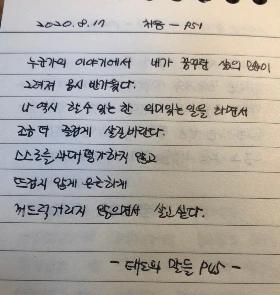 2020.8.17 처음 - P51
누군가의 이야기에서 내가 꿈꾸던 삶의 모습이
그려져 몹시 반가웠다.
나 역시 할 수 있는 한 의미있는 일을 하면서
조금 더 즐겁게 살길 바란다.
스스로를 과대평가하지 않고
뜨겁지 않게 은은하게
허드럭거리지 않으면서 살고 싶다.
- 태도의 말들 P45 -